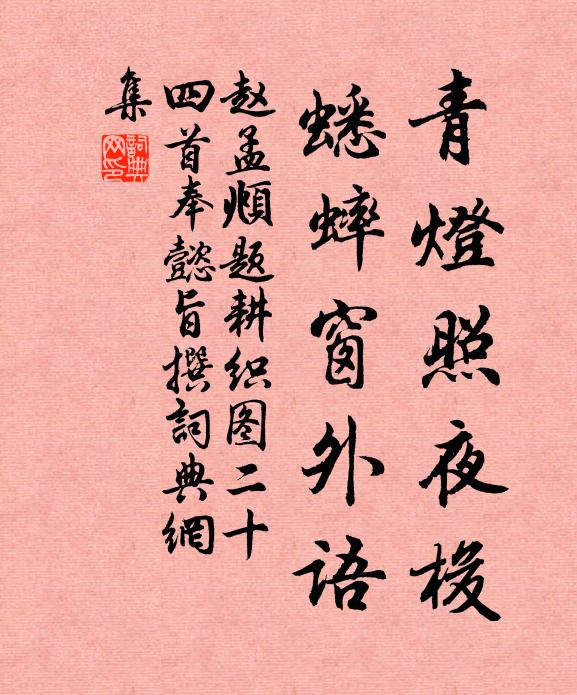 青燈照夜梭
蟋蟀窗外语
赵孟頫题耕织图二十
四首奉懿旨撰詞典網
集
詞典网印